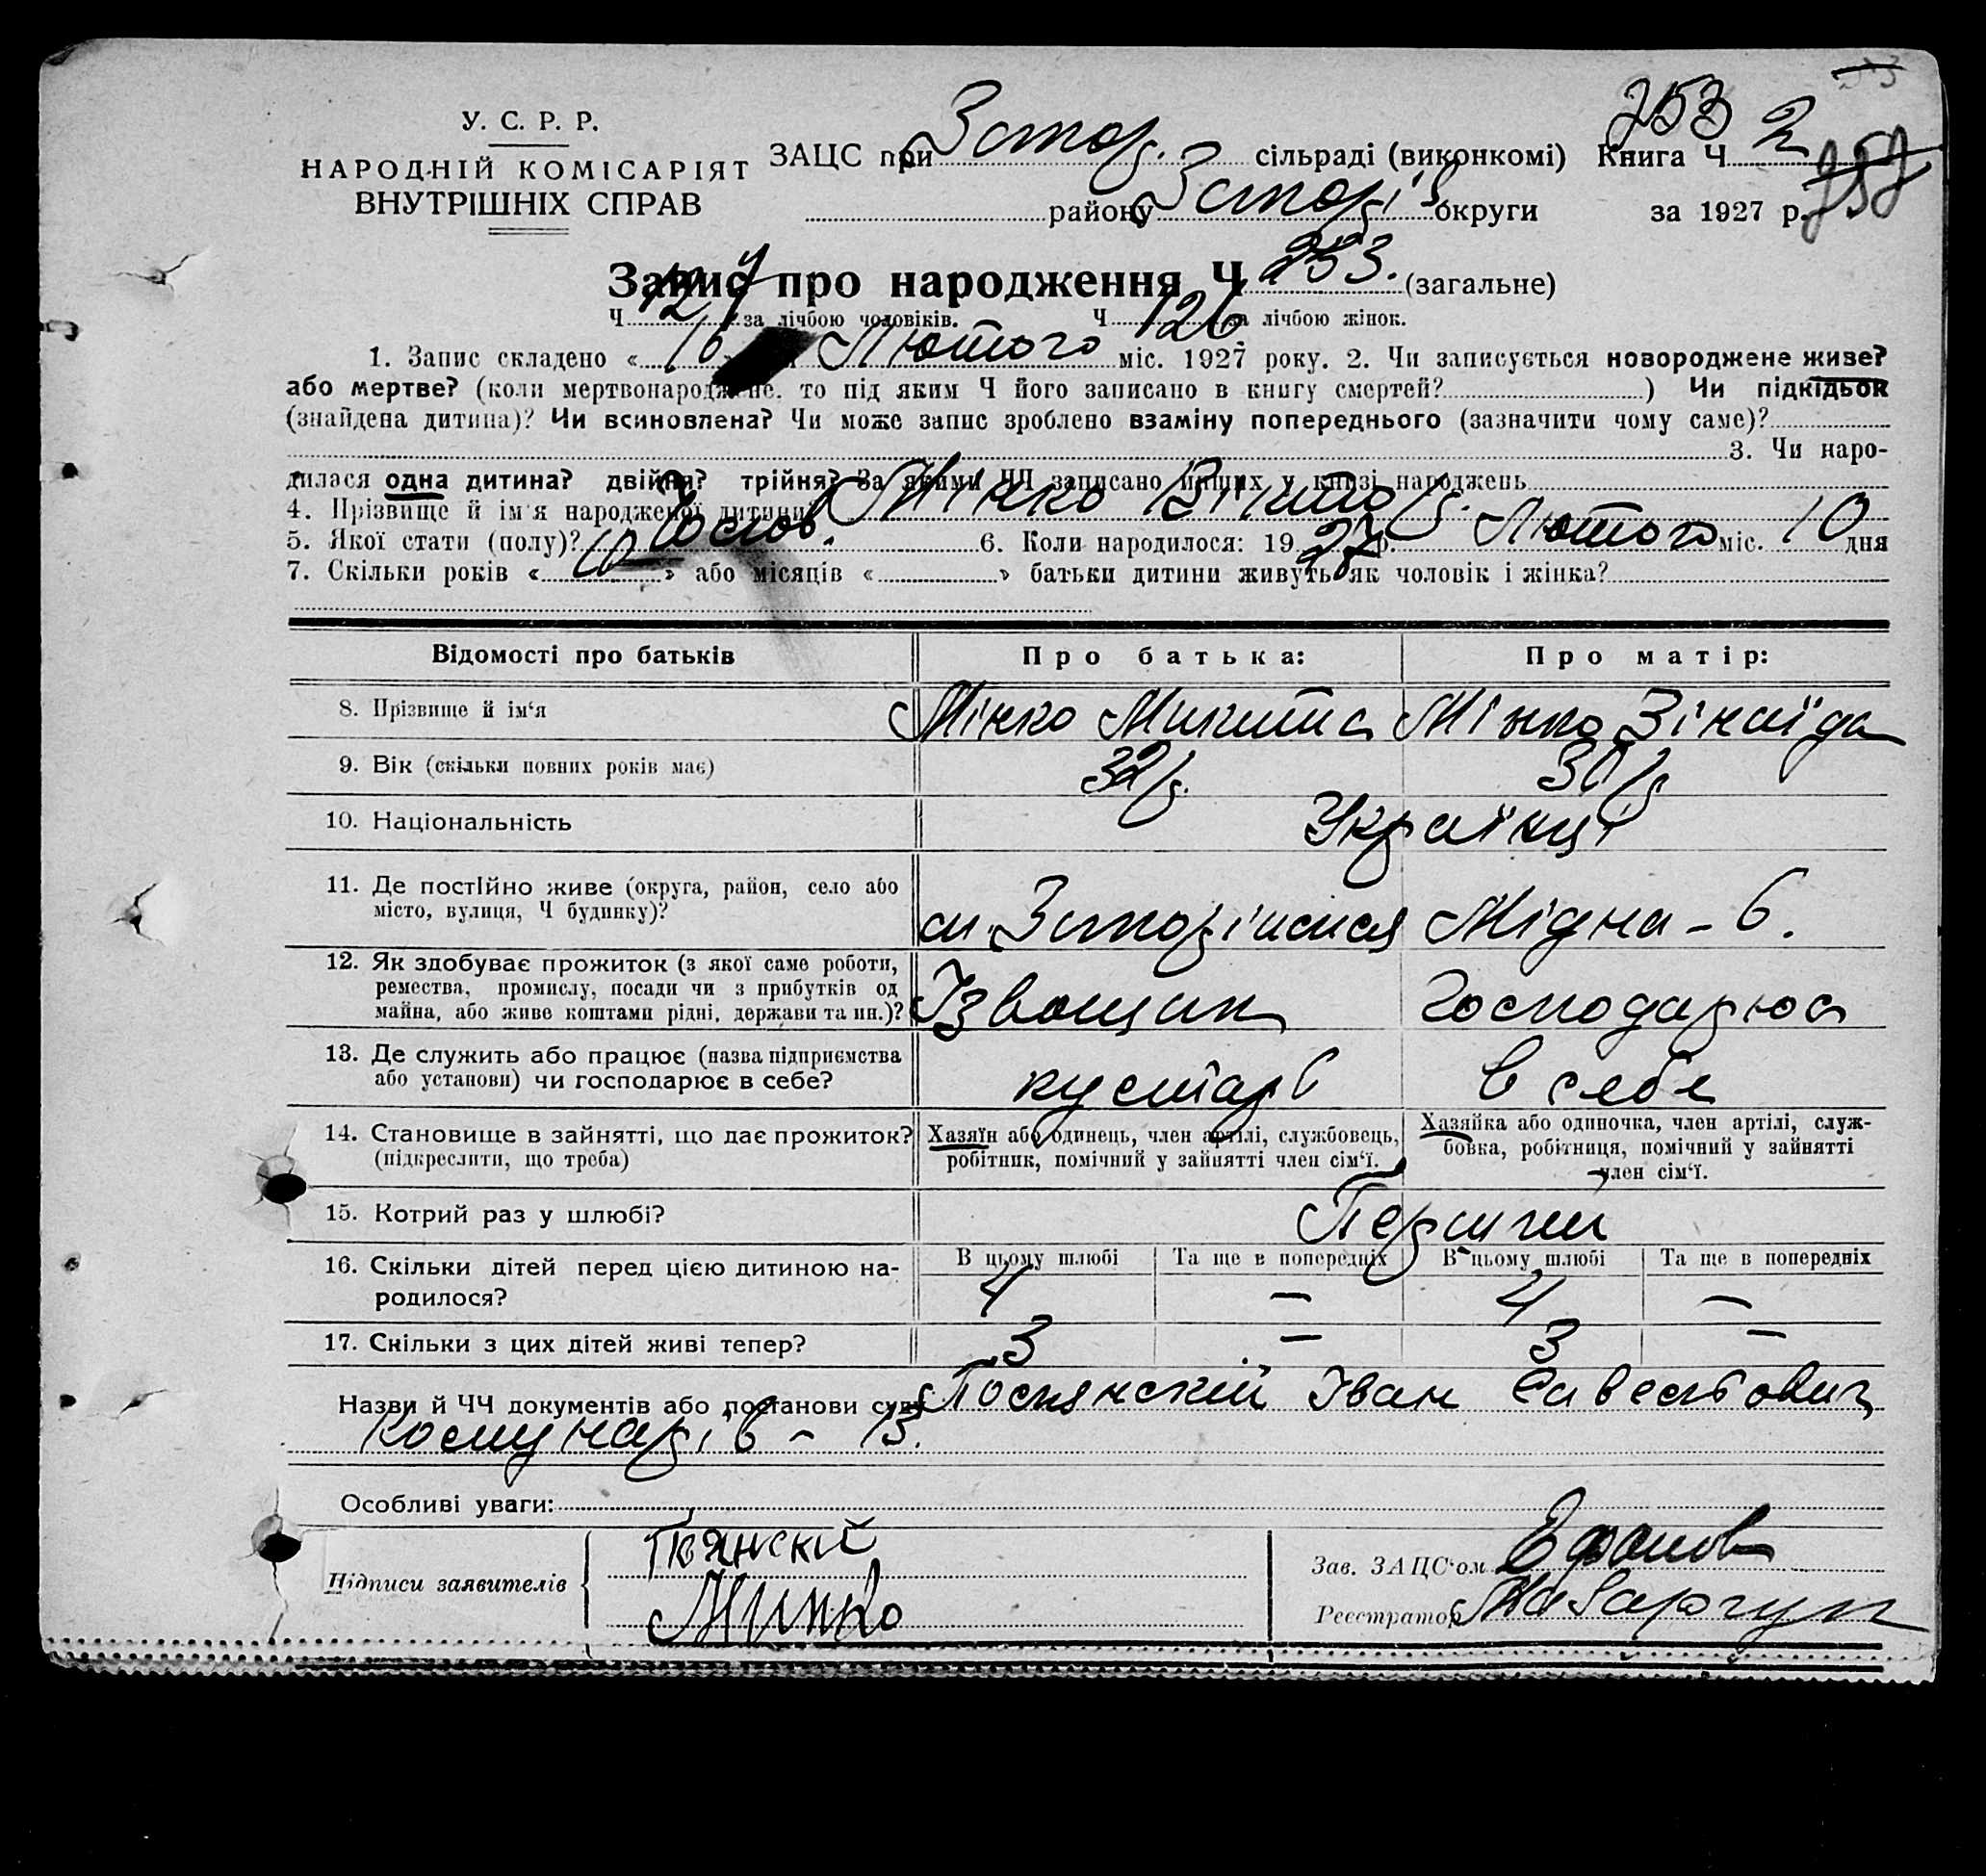 253
У. С. Р. Р.
НАРОДНІЙ КОМІСАРІЯТ
ВНУТРІШНІХ СПРАВ
ЗАЦС при Запор. сільраді (виконкомі) Книга Ч 2
району Запоріз округи за 1927 р.
Запис про народження Ч 253. (загальне)
Ч 127 за лічбою чоловіків. Ч 126 за лічбою жінок.
1. Запис складено « 16 » Лютого міс. 1927 року. 2. Чи записується новороджене живе?
або мертве? (коли мертвонароджене, то під яким Ч його записано в книгу смертей? ) Чи підкідьок
(знайдена дитина)? Чи всиновлена? Чи може запис зроблено взаміну попереднього (зазначити чому саме)?
3. Чи наро-
дилася одна дитина? двійня? трійня? За якими ЧЧ записано інших у книзі народжень
4. Прізвище й ім'я народженої дитини Мінко Віктор.
5. Якої стати (полу)? Чолов. 6. Коли народилося: 1927 р. Лютого міс. 10 дня
7. Скільки років « 10 » або місяців « » батьки дитини живуть як чоловік і жінка?
Відомості про батьків Про батька: Про матір:
8. Прізвище й ім'я Мінко Микита Мінко Зінаїда
9. Вік (скільки повних років має) 32 р. 30 р
10. Національність Українці
11. Де постійно живе (округа, район, село або
місто, вулиця, Ч будинку)? м. Запоріжжя Мідна - 6.
12. Як здобуває прожиток (з якої саме роботи,
ремества, промислу, посади чи з прибутків од
майна, або живе коштами рідні, держави та ин.)? Ізвощик Господарює
13. Де служить або працює (назва підприємства
або установи) чи господарює в себе? кустарь в себе
14. Становище в зайнятті, що дає прожиток?
(підкреслити, що треба)
Хазяїн або одинець, член артілі, службовець,
робітник, помічний у зайнятті член сім'ї.
Хазяйка або одиночка, член артілі, служ-
бовка, робітниця, помічний у зайнятті
член сім'ї.
15. Котрий раз у шлюбі? Перший
16. Скільки дітей перед цією дитиною на-
родилося?
В цьому шлюбі Та ще в попередніх В цьому шлюбі Та ще в попередніх
4 — 4 —
17. Скільки з цих дітей живі тепер? 3 — 3 —
Назви й ЧЧ документів або постанови суду Іван
Комунарів - 13.
Особливі уваги:
Підписи заявителів
Минко
Зав. ЗАЦС'ом
Реєстратор